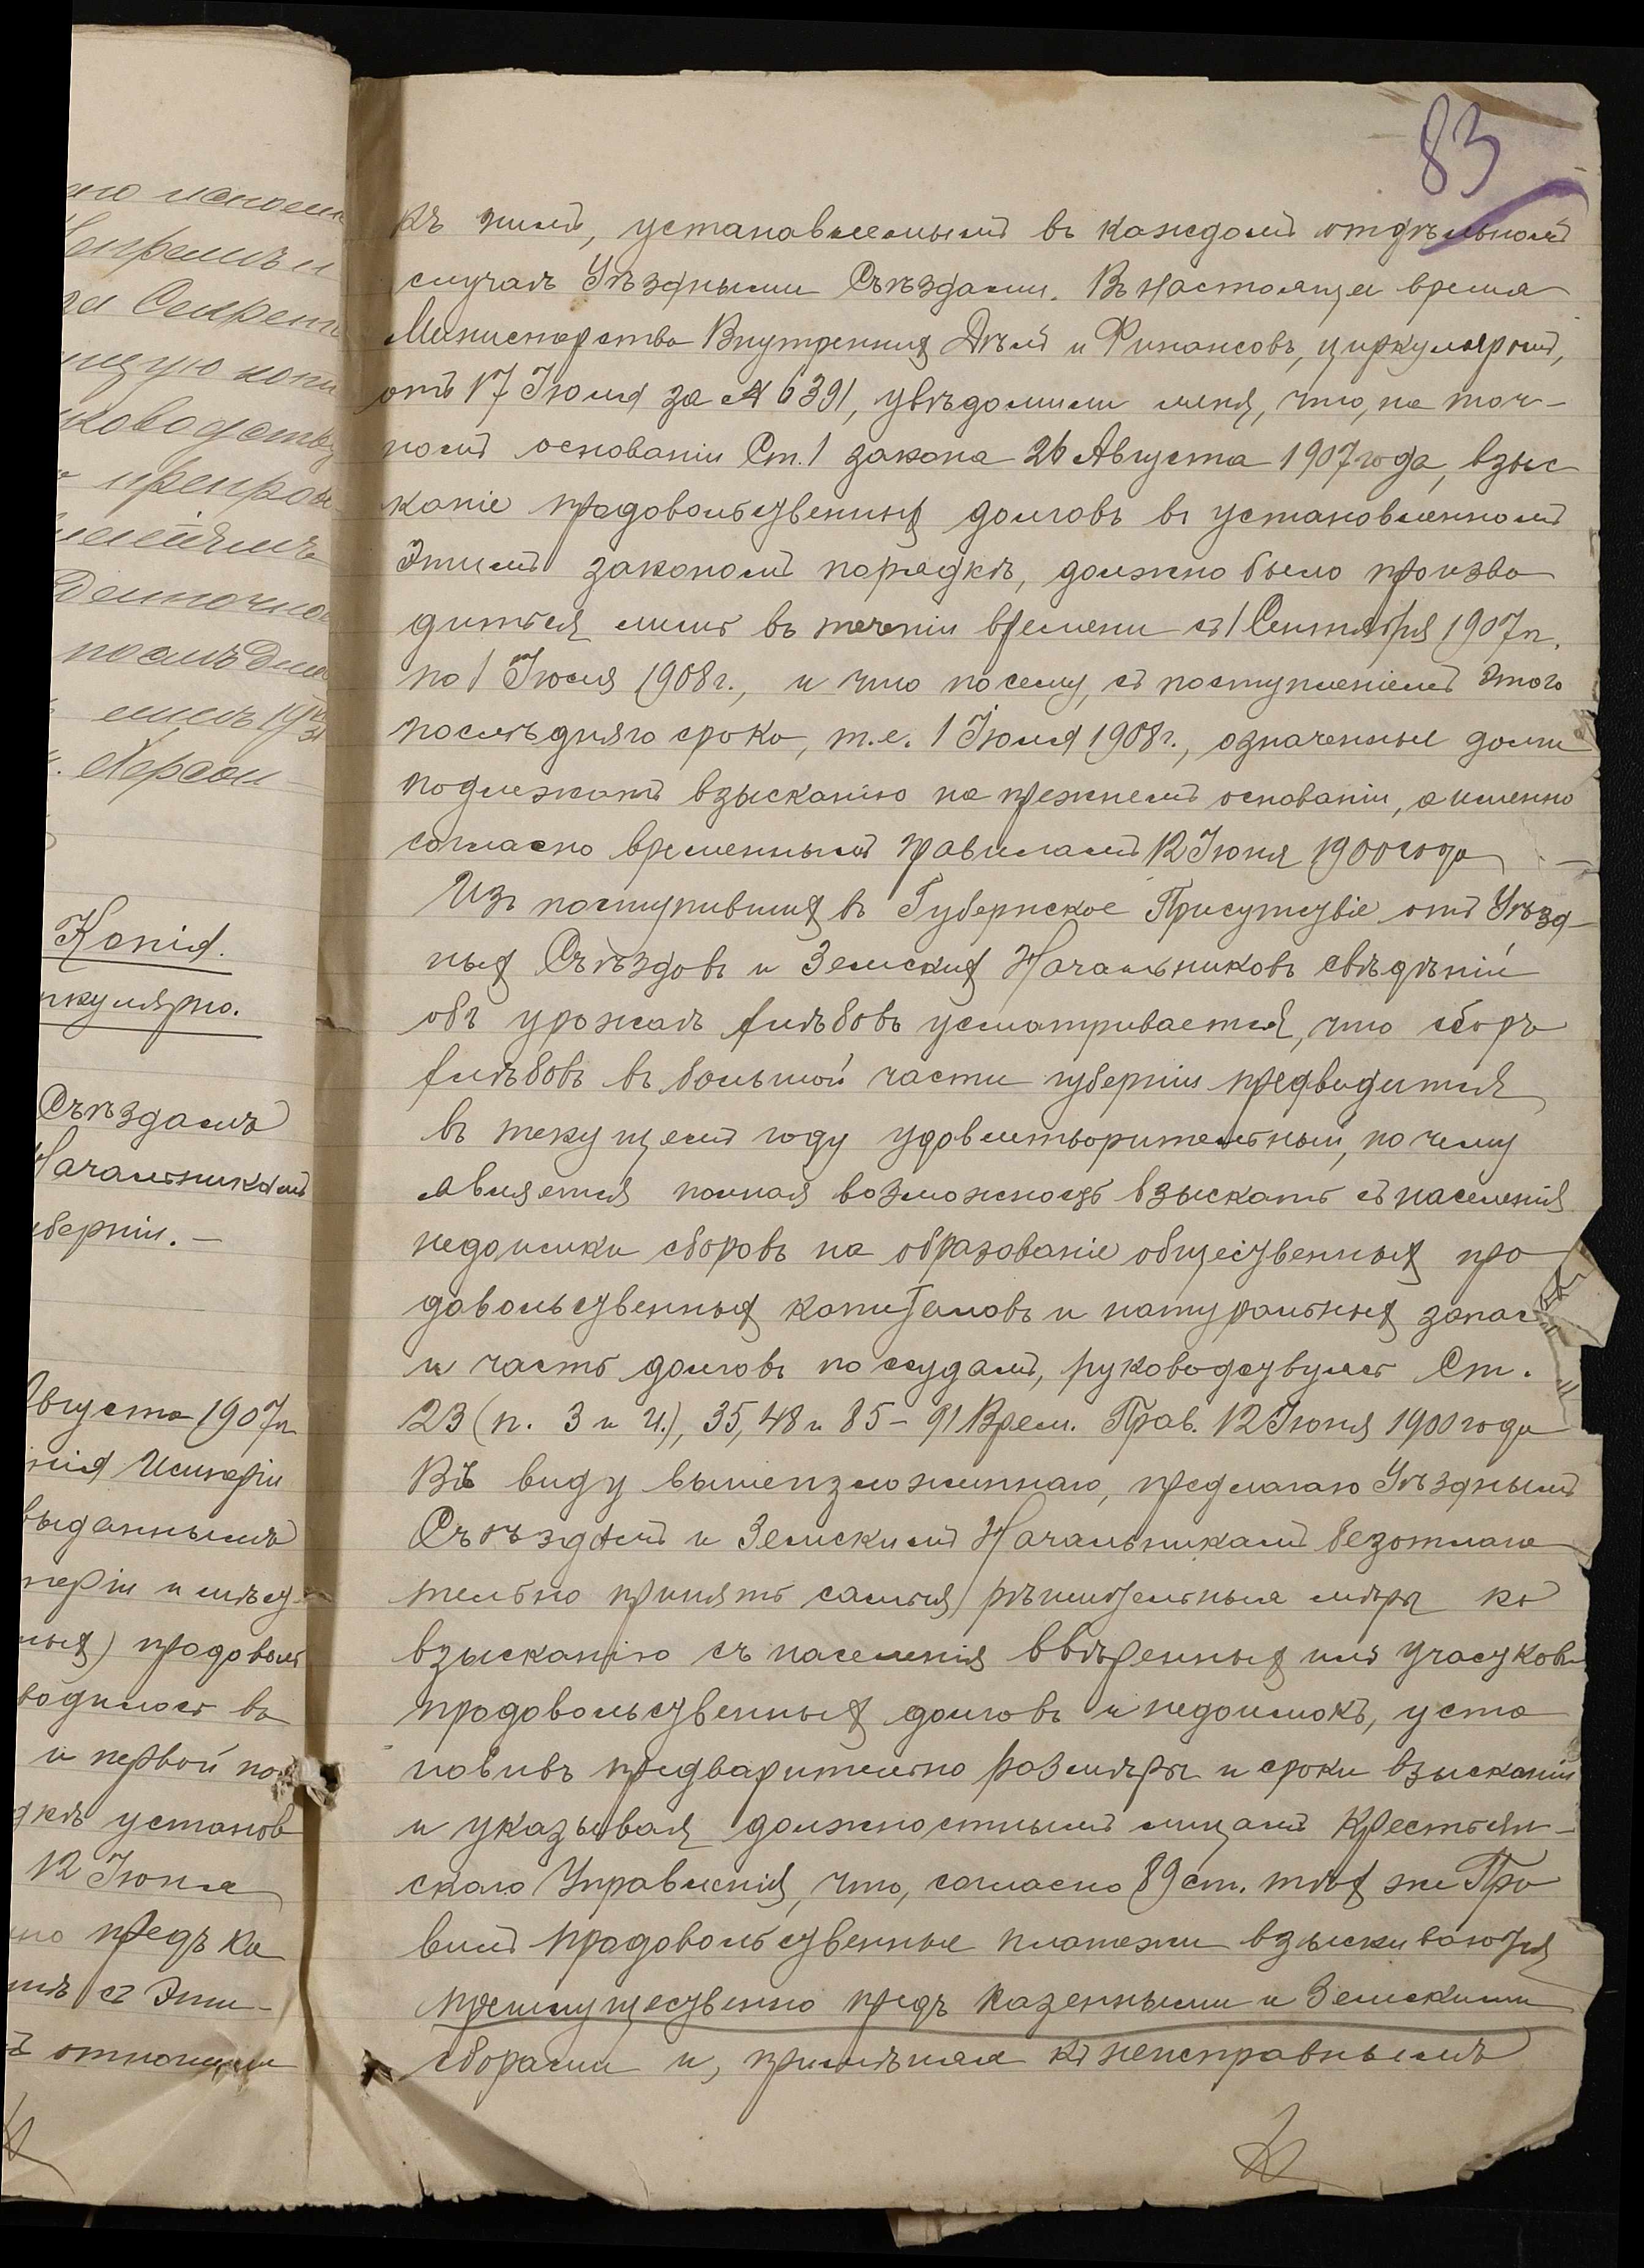 ого исполн
Секрет
щую копи
ководству
Копія.
ркулярно.
Съѣздамъ
Начальникамъ
уберніи. —
Августа 1907 г.
нія Имперіи
выданнымъ
перію и мѣст
ныхъ) продоволь
водилось въ
и первой по
дкѣ установ
12 Іюня
но предъ ка
мъ съ Эти-
ъ отношени
83
къ нимъ, устанавлеемымъ въ каждомъ отдѣльномъ
случаѣ Уѣздными Съѣздами. Въ настоящее время
Министерства Внутреннихъ Дѣлъ и Финансовъ, циркуляромъ,
отъ 17 Іюля за № 6391, увѣдомили меня, что, на точ-
номъ основаніи Ст. 1 закона 26 Августа 1907 года, взыс
каніе продовольственныхъ долговъ въ установленномъ
Этимъ закономъ порядкѣ, должно было произво
диться лишь въ теченіи времени съ 1 Сентября 1907 г.
по 1 Іюля 1908 г., и что посему, съ поступленіемъ Этого
послѣдняго срока, т.е. 1 Іюля 1908 г., означенные долги
подлежатъ взысканію на прежнемъ основаніи, а именно
согласно временнымъ правиламъ 12 Іюня 1900 года —
Изъ поступившихъ въ Губернское Присутствіе отъ Уѣзд-
ныхъ Съѣздовъ и Земскихъ Начальниковъ свѣдѣній
объ урожаѣ хлѣбовъ усматривается, что сборъ
хлѣбовъ въ большой части губерніи предвидится
въ текущемъ году удовлетворительный, почему
является полная возможность взыскать съ населенія
недоимки сборовъ на образованіе общественныхъ про
довольственныхъ капиталовъ и натуральныхъ запас
и часть долговъ по ссудамъ, руководствуясь Ст.
23 (п. 3 и 4.), 35, 48 и 85 - 91 Врем. Прав. 12 Іюня 1900 года
Въ виду вышеизложеннаго, предлагаю Уѣзднымъ
Съѣздамъ и Земскимъ Начальникамъ безотлага
тельно принять самыя рѣшительныя мѣры къ
взысканію съ населенія ввѣренныхъ имъ участковъ
продовольственныхъ долговъ и недоимокъ, уста
новивъ предварительно размѣры и сроки взысканія
и указывая должностнымъ лицамъ Крестьян-
скаго Управленія, что, согласно 89 ст. тѣхъ же Пра
вилъ продовольственные платежи взыскиваются
преимущественно предъ казенными и Земскими
сборами и, примѣняя къ неисправнымъ